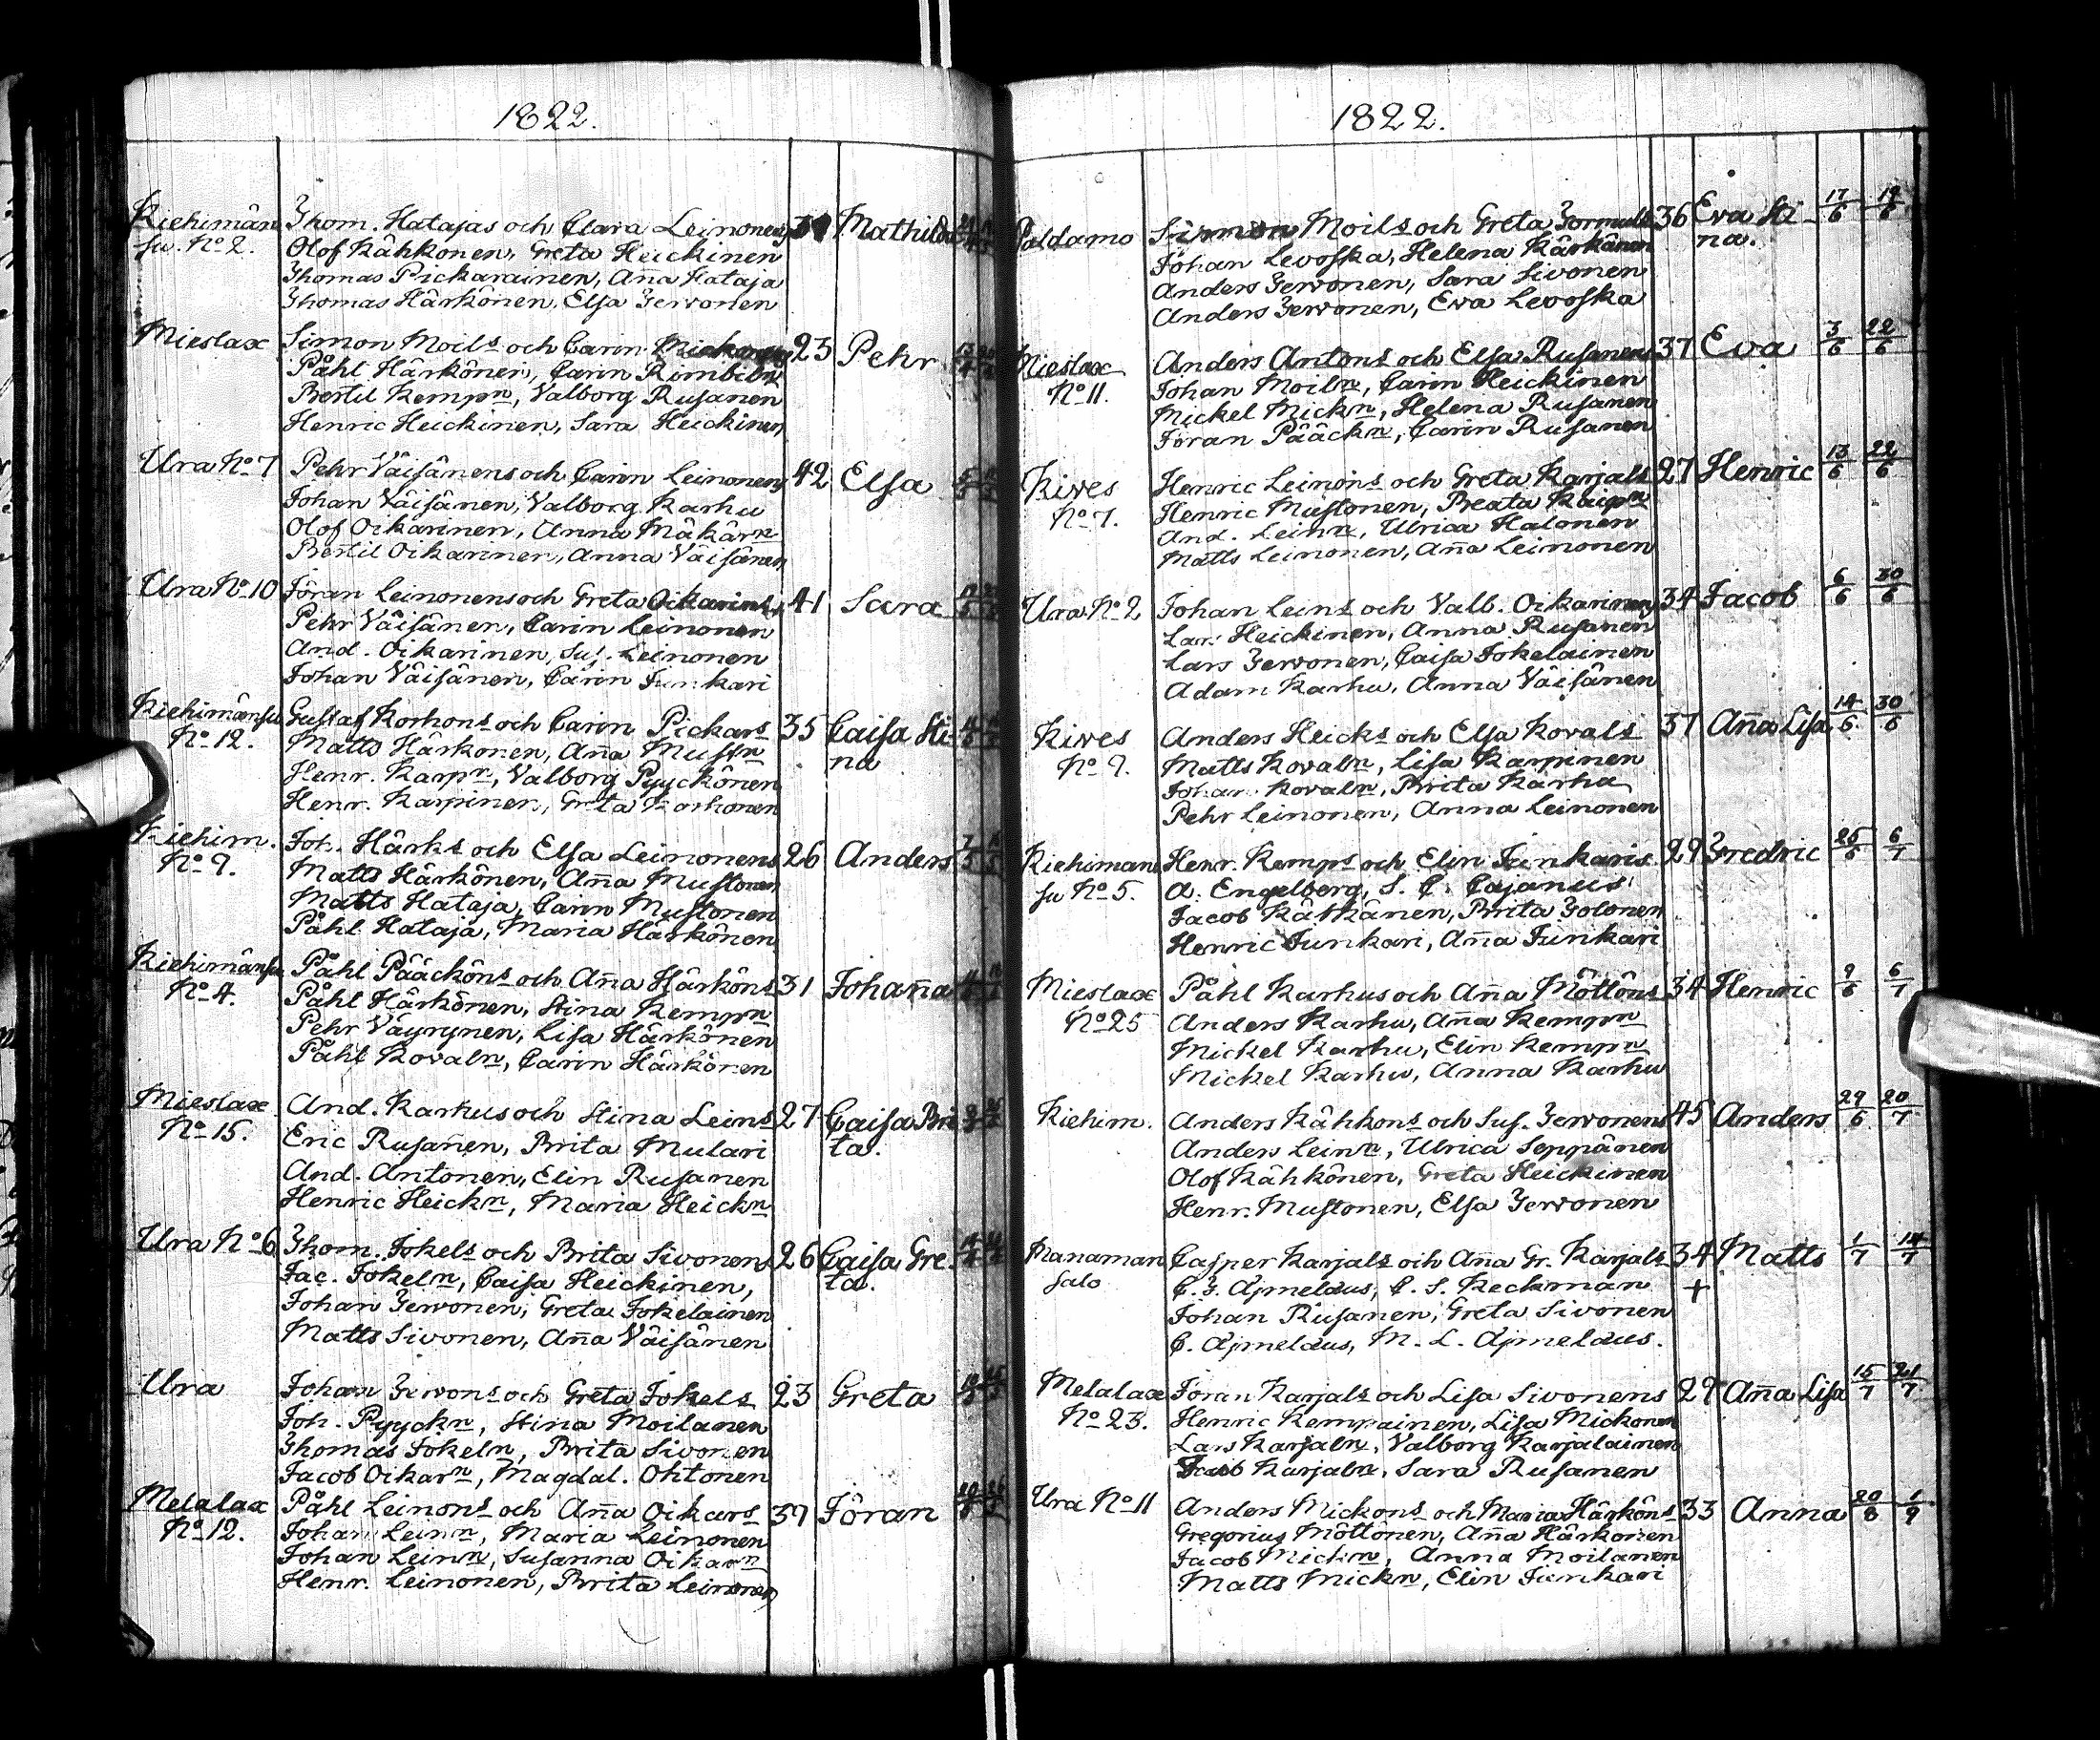 1822.
Kiehimän Thom. Hatajas och Clara Leinonens Mathilda
su. No 2. Olof Kähkönen, Greta Heickinen
Thomas Pickarainen, Aña Hataja
Thomas Härkönen, Elsa Tervonen
Mieslax Simon Moils och Carin 23 Pehr
Påhl Härkönen, Carin
Bertil Kempn, Valborg Rusanen
Henric Heickinen, Sara Heickinen
Ura No 7 Pehr Väisänens och Carin Leinonens 42 Elsa
Johan Väisänen, Valborg Karhu
Olof Oikarinen, Anna Mäkärn
Bertil Oikarinen, Anna Väisänen
Ura No 10 Jöran Leinonens och Greta Oikarins 41 Sara
Pehr Väisänen, Carin Leinonen
And. Oikarinen, Sus. Leinonen
Johan Väisänen, Carin Junkari
Kiehimänsu Gustaf Korhons och Carin Pickars 35 Caisa Sti-
No 12. Matts Härkönen, Aña Mustn na
Henr. Karpn, Valborg Pyyckönen
Henr. Karpinen, Greta Korhonen
Kiehim. Joh. Härks och Elsa Leinonens 26 Anders
No 9. Matts Härkönen, Aña Mustonen
Matts Hataja, Carin Mustonen
Påhl Hataja, Maria Härkönen
Kiehimänsu Påhl Pääcköns och Aña Härköns 31 Johaña
No 4. Påhl Härkönen, Stina Kempn
Pehr Väyrynen, Lisa Härkönen
Påhl Kovaln, Carin Härkönen
Mieslax And. Karhus och Stina Leins 27 Caisa Bri
No 15. Eric Rusanen, Brita Mulari ta.
And. Antonen, Elin Rusanen
Henric Heickn, Maria Heickn
Ura No 6 Thom. Jokels och Brita Sivonens 26 Caisa Gre-
Jac. Jokeln, Caisa Heickinen, ta.
Johan Tervonen, Greta Jokelainen
Matts Sivonen, Aña Väisänen
Ura Johan Tervons och Greta Jokels 23 Greta
Joh. Pyyckn, Stina Moilanen
Thomas Jokeln, Brita Sivonen
Jacob Oikarn, Magdal. Ohtonen
Melalax Påhl Leinons och Aña Oikars 37 Jöran
No 12. Johan Leinn, Maria Leinonen
Johan Leinn, Susanna Oikarn
Henr. Leinonen, Brita Leinonen
1822.
Paldamo Simon Moils och Greta 36 Eva Sti- 17/6 19/6
Johan Levoska, Helena Kärkänen na.
Anders Tervonen, Sara Sivonen
Anders Tervonen, Eva Levoska
Mieslax Anders Antons och Elsa Rusanens 37 Eva 3/6 22/6
No 11. Johan Moiln, Carin Heickinen
Mickel Mickn, Helena Rusanen
Jöran Pääckn, Carin Rusanen
Kives Henric Leinons och Greta Karjals 27 Henric 13/6 22/6
No 7. Henric Mustonen, Beata Kaipn
And. Leinn, Ulrica Halonen
Matts Leinonen, Aña Leinonen
Ura No 2 Johan Leins och Valb. Oikarinens 34 Jacob 6/6 30/6
Lars Heickinen, Anna Rusanen
Lars Tervonen, Caisa Jokelainen
Adam Karhu, Anna Väisänen
Kives Anders Heicks och Elsa Kovals 37 Aña Lisa 14/6 30/6
No 9. Matts Kovaln, Lisa Karpinen
Johan Kovaln, Brita Karhu
Pehr Leinonen, Anna Leinonen
Kiehimän Henr. Kemps och Elin Junkaris 29 Fredric 25/6 6/7
su No 5. A. Engelberg, S. C. Cajanus
Jacob Kätkänen, Brita Tolonen
Henric Junkari, Aña Junkari
Mieslax Påhl Karhus och Aña Möttöns 34 Henric 9/6 6/7
No 25 Anders Karhu, Aña Kempn
Mickel Karhu, Elin Kempn
Mickel Karhu, Anna Karhu
Kiehim. Anders Kähkons och Sus. Tervonens 45 Anders 29/6 20/7
Anders Leinn, Ulrica Seppänen
Olof Kähkönen, Greta Heickinen
Henr. Mustonen, Elsa Tervonen
Manaman Casper Karjals och Aña Gr. Karjals 34 Matts 1/7 14/7
salo C. F. Ajmelæus, C. S. Keckman +
Johan Rusanen, Greta Sivonen
C. Ajmelæus, M. L. Ajmelæus.
Melalax Jöran Karjals och Lisa Sivonens 29 Aña Lisa 15/7 21/7
No 23. Henric Kempainen, Lisa Mickonen
Lars Karjaln, Valborg Karjalainen
Karjaln, Sara Rusanen
Ura No 11 Anders Mickons och Maria Härköns 33 Anna 20/8 1/9
Gregorius Möttönen, Aña Härkönen
Jacob Mickn, Anna Moilanen
Matts Mickn, Elin Junkari